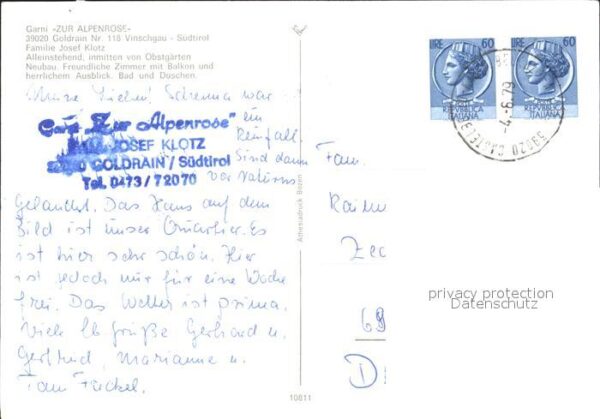 Garni »ZUR ALPENROSE«
39020 Goldrain Nr. 118 Vinschgau - Südtirol
Familie Josef Klotz
Alleinstehend, inmitten von Obstgärten
Neubau. Freundliche Zimmer mit Balkon und
herrlichem Ausblick. Bad und Duschen.
Meine Lieben! Schenna war
ein
Reinfall.
Sind dann
vor Naturns
Garni „Zur Alpenrose"
JOSEF KLOTZ
GOLDRAIN / Südtirol
Tel. 0473 / 72070
Gelandet. Das Haus auf dem
Bild ist unser Quartier. Es
ist hier sehr schön. Hier
ist jedoch nur für eine Woche
frei. Das Wetter ist prima.
Viele lb Grüße Gerhard u.
Gertrud, Marianne u.
Fam Fackel.
Athesiadruck Bozen
10811
LIRE 60
REPUBBLICA
ITALIANA
LIRE 60
REPUBBLICA
ITALIANA
-4.-6.79
39020
Fam.
Raine
Zec
69
D
privacy protection
Datenschutz